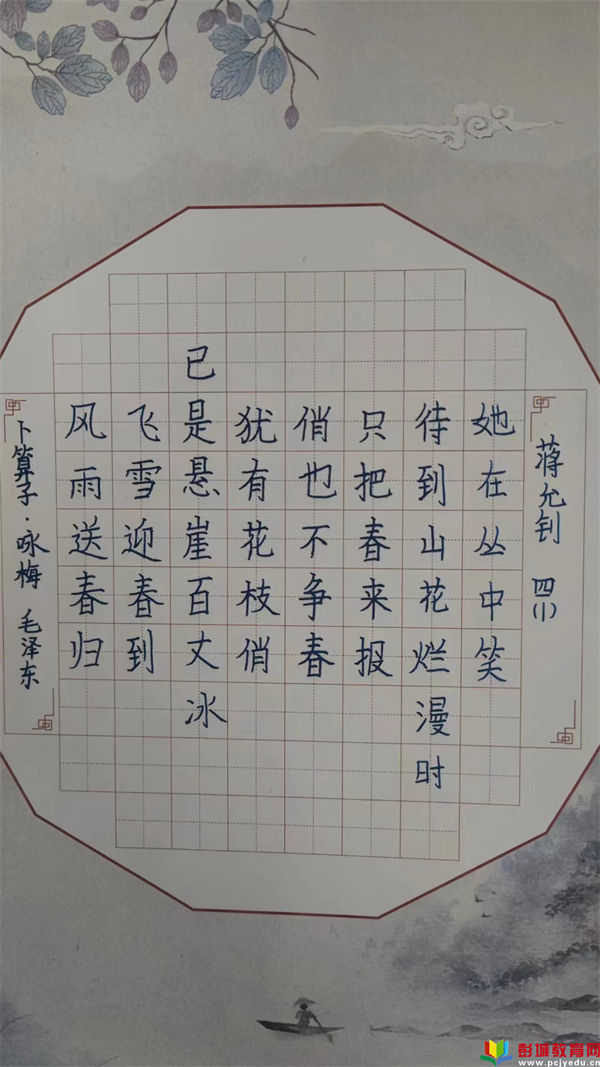 卜算子·咏梅 毛泽东
风雨送春归
飞雪迎春到
已是悬崖百丈冰
犹有花枝俏
俏也不争春
只把春来报
待到山花烂漫时
她在丛中笑
蒋允钊 四(1)
彭城教育网
www.pcjyedu.cn